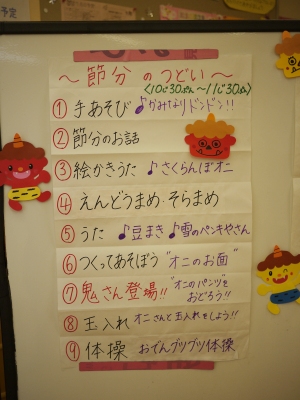 予定
〜節分のつどい〜
〈10じ30ぷん〜11じ30ぷん〉
① 手あそび ♪かみなりドンドン!!
② 節分のお話
③ 絵かきうた ♪さくらんぼオニ
④ えんどうまめ・そらまめ
⑤ うた ♪豆まき ♪雪のペンキやさん
⑥ つくってあそぼう "オニのお面"
⑦ 鬼さん登場!! "オニのパンツ"をおどろう!!
⑧ 玉入れ オニさんと玉入れをしよう!!
⑨ 体操 おでんグツグツ体操